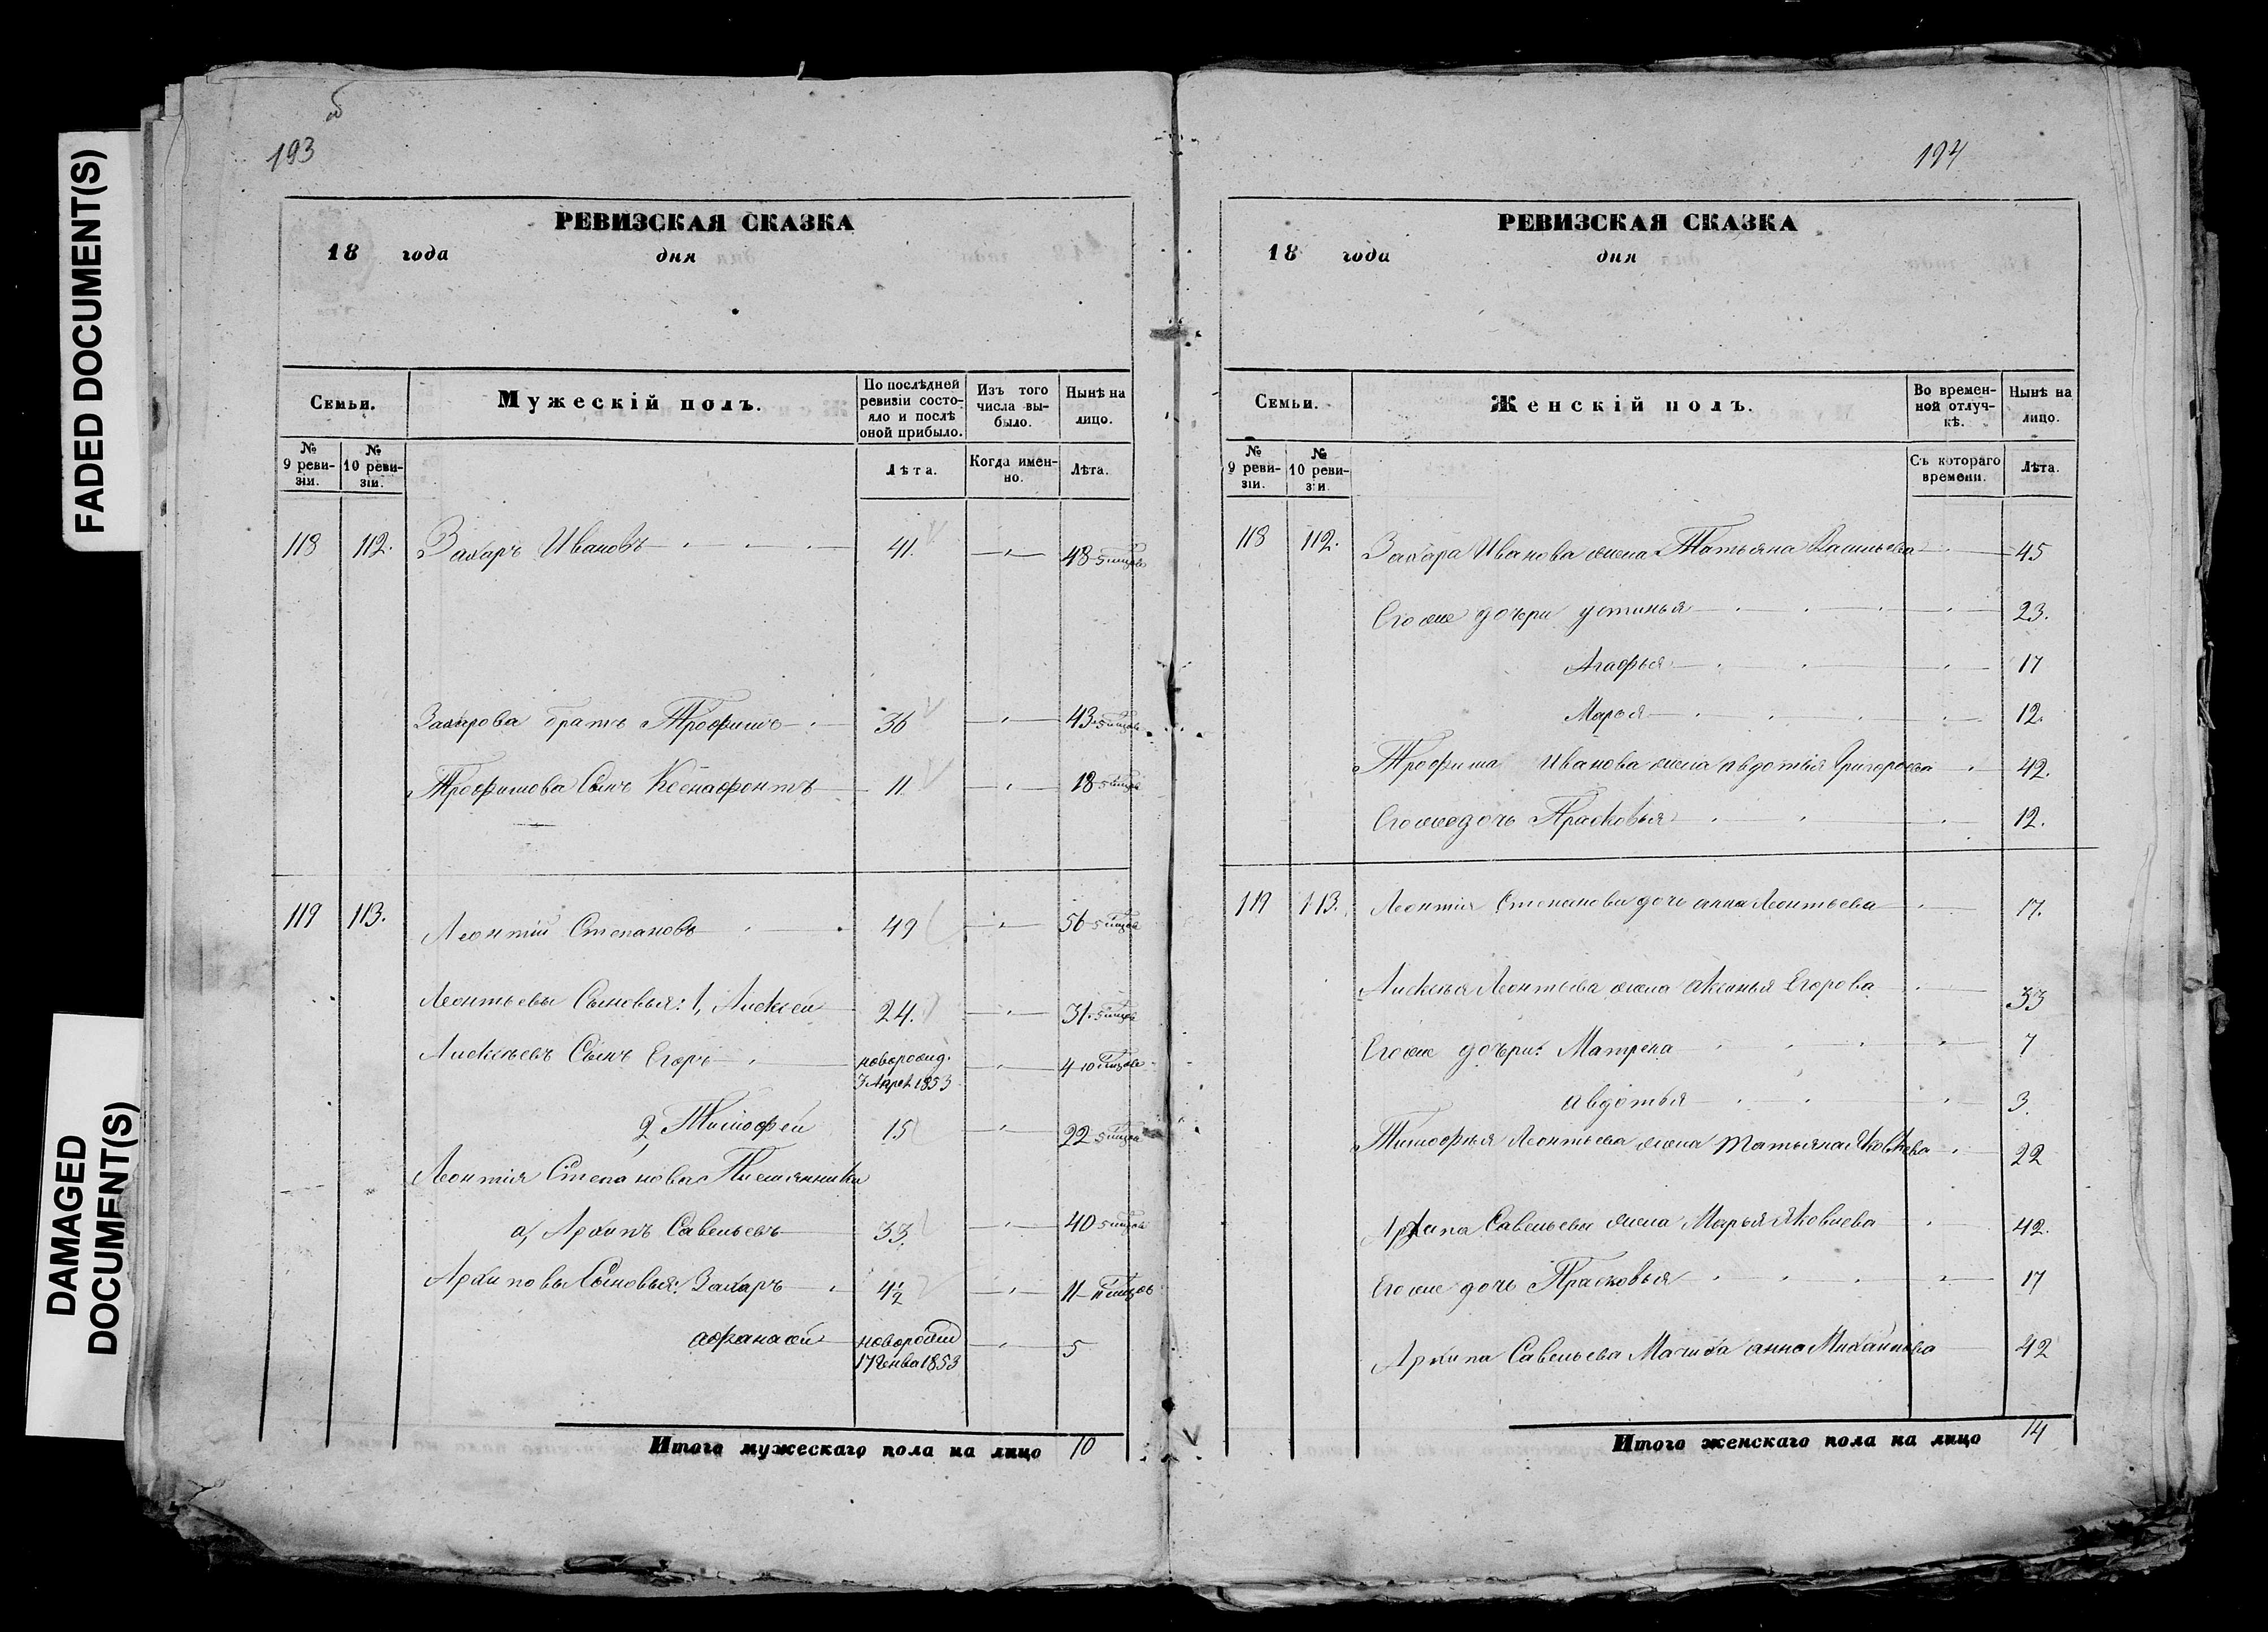 FADED DOCUMENT(S)
DAMAGED
DOCUMENT(S)
193
РЕВИЗСКАЯ СКАЗКА
18 года дня
Семьи. Мужескій полъ. По послѣдней ревизіи состояло и послѣ оной прибыло. Изъ того числа выбыло. Нынѣ на лицо.
№ 9 ревизіи. № 10 ревизіи. Лѣта. Когда именно. Лѣта.
118 112. Захаръ Ивановъ 41. 48
Захарова братъ Трофимъ 36 43
Трофимова Сынъ Ксенафонтъ 11 18
119 113. Леонтій Степановъ 49 56
Леонтьевы Сыновья: 1, Алексей 24. 31
Алексѣевъ Сынъ Егоръ новорожд. 4
7 Апрел 1853
2, Тимофей 15 22
Леонтія Степанова Племянники
а, Архипъ Савельевъ 33. 40
Архиповы Сыновья: Захаръ 4½ 11
Афанасий 5
17 Генва 1853
Итого мужескаго пола на лицо 10
194
РЕВИЗСКАЯ СКАЗКА
18 года дня
Семьи. Женскій полъ. Во временной отлучкѣ. Нынѣ на лицо.
№ 9 ревизіи. № 10 ревизіи. Съ котораго времени. Лѣта.
118 112. Захара Иванова жена Татьяна Васильева 45
Егоже дочери Устинья 23.
Агафья 17
Марья 12.
Трофима Иванова жена Авдотья Григорьева 42.
Егоже дочь Прасковья 12.
119 113. Леонтія Степанова дочь Анна Леонтьева 17.
Алексѣя Леонтьева жена Аксинья Егорова 33
Егоже дочери: Матрена 7
Авдотья 3.
Тимофѣя Леонтьева жена Татьяна Яковлева 22
Архипа Савельева жена Марья Яковлева 42.
Егоже дочь Прасковья 17
Архипа Савельева Мачиха Анна Михайлова 42
Итого женскаго пола на лицо 14